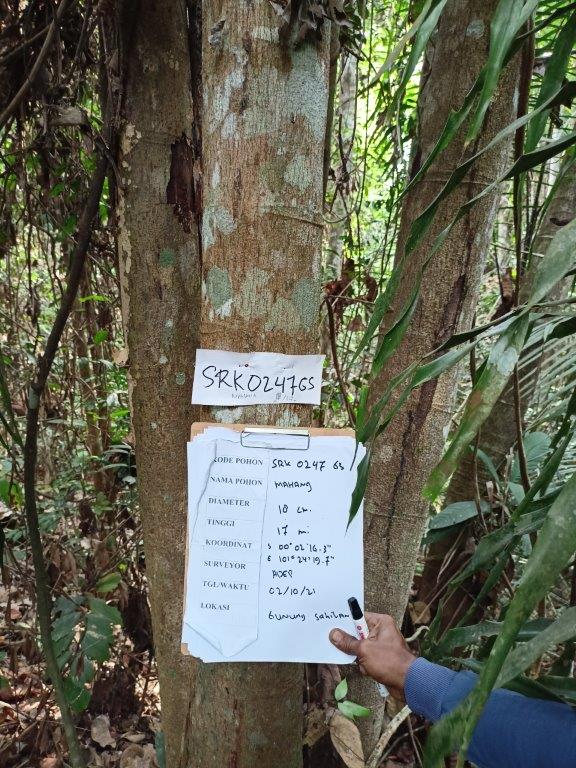 SRK0247GS
KODE POHON SRK 0247 GS
NAMA POHON MAHANG
DIAMETER 18 cm.
TINGGI 17 m.
KOORDINAT S 00°02'16.3"
E 101°24'19.7"
SURVEYOR
TGL/WAKTU 02/10/21
LOKASI Gunung Sahilan